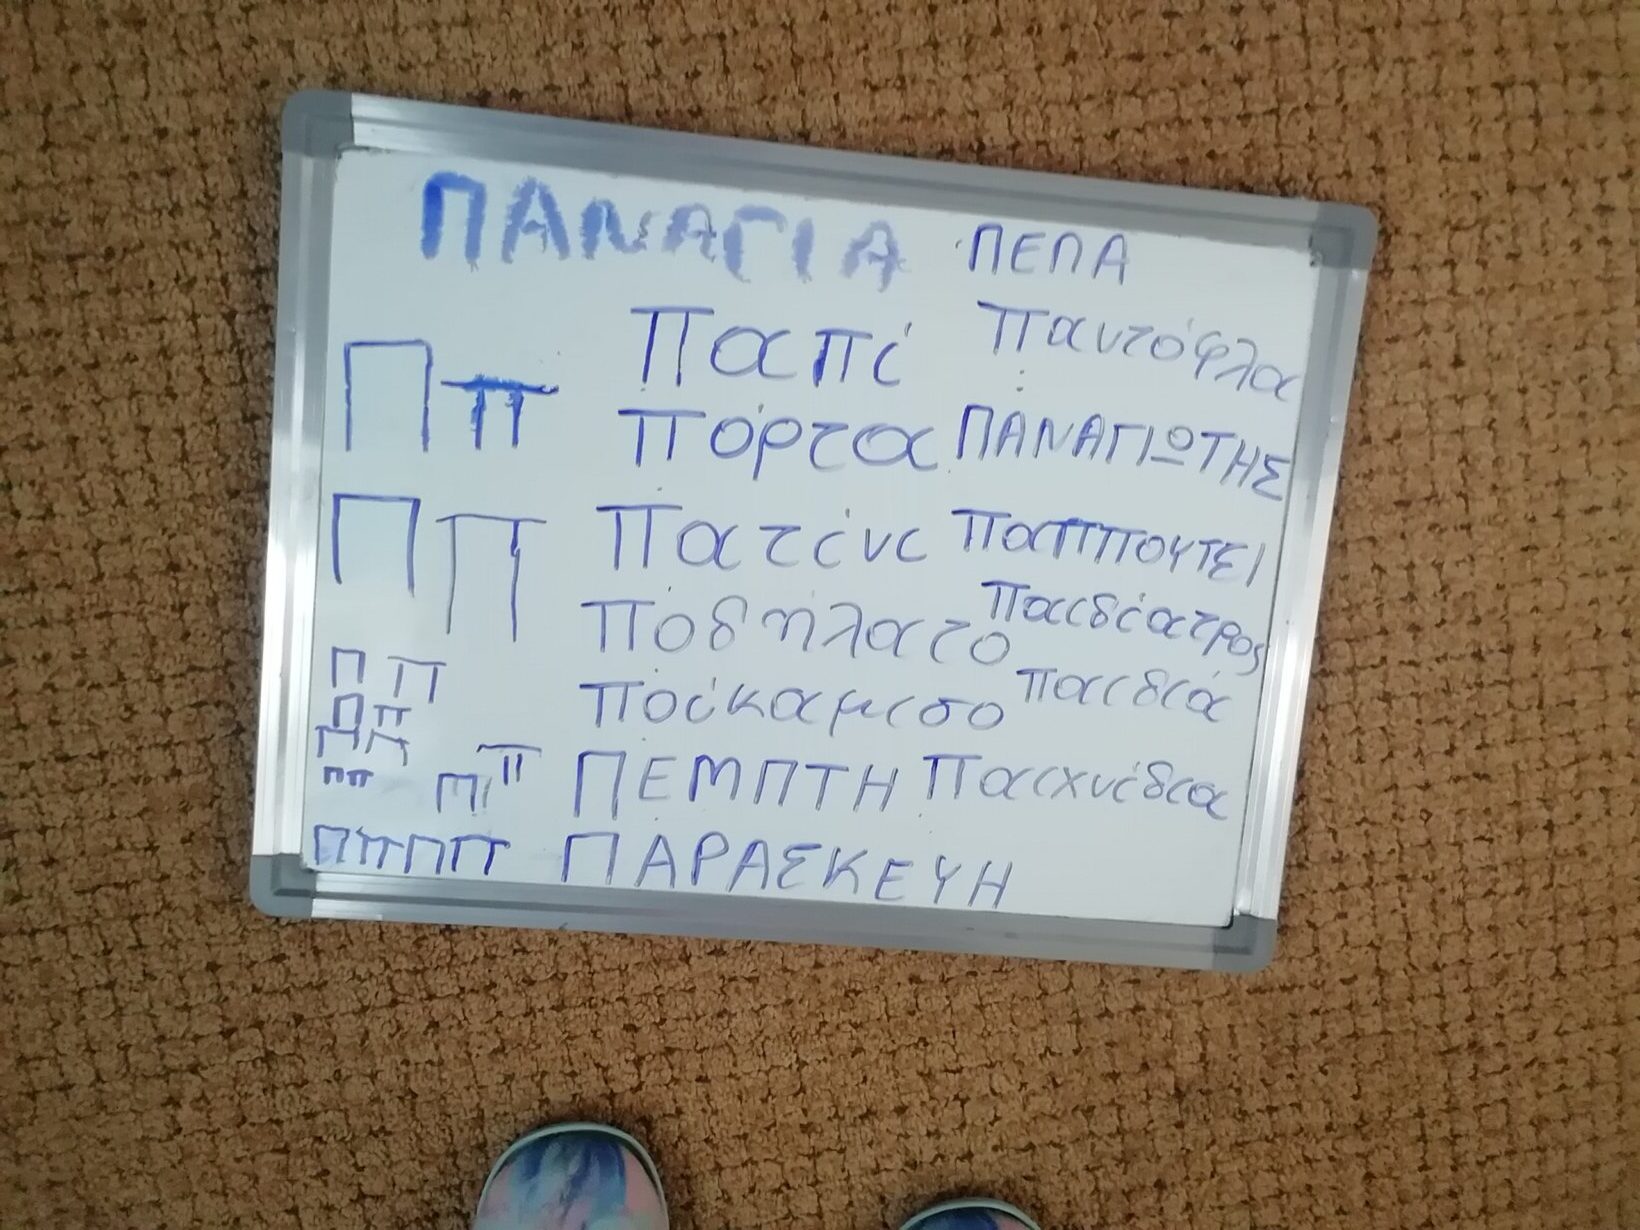 ΠΑΝΑΓΙΑ ΠΕΠΑ
Παπί παντόφλα
Π π
πόρτα ΠΑΝΑΓΙΩΤΗΣ
Π π
πατίνι παππουτσι
ποδήλατο παιδίατρος
Π π
ποίκαμισο παιδιά
Π π
Π π
π π
Π π
ΠΕΜΠΤΗ παιχνίδια
Π π Π π ΠΑΡΑΣΚΕΥΗ